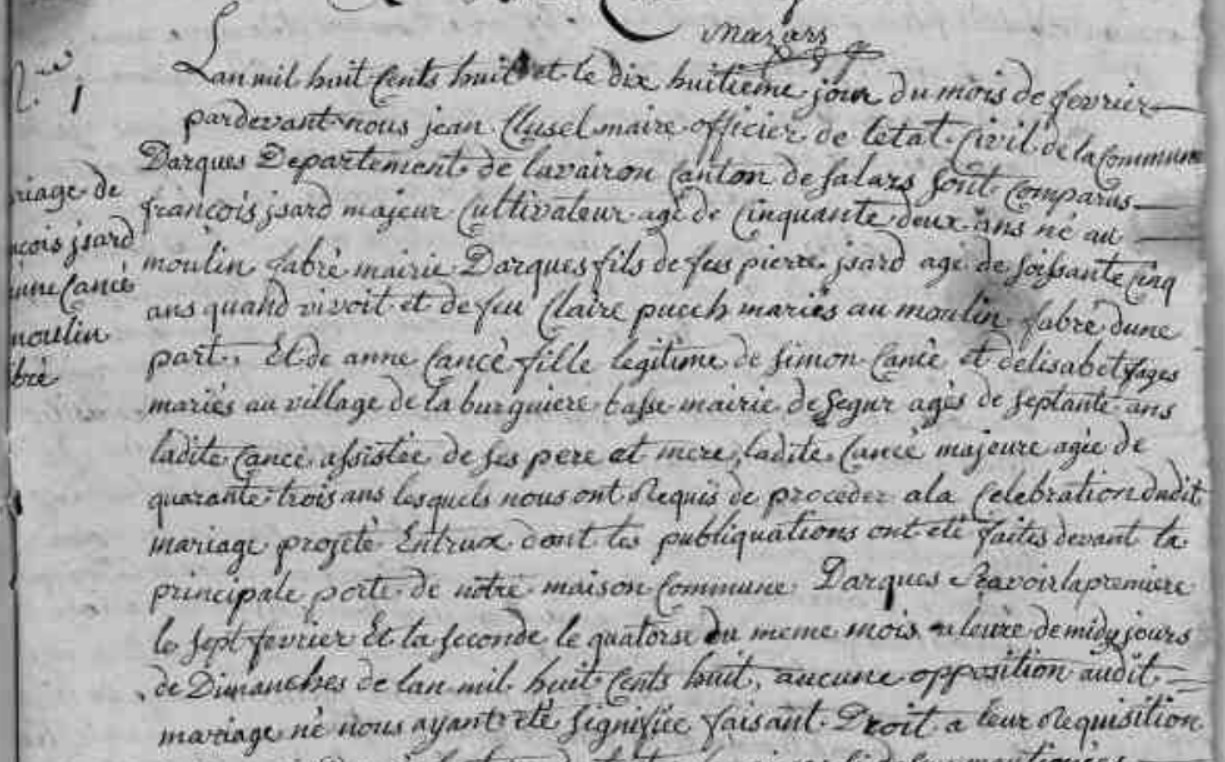 mazars
N.ro 1
Lan mil huit Cents huit et le dix huitieme jour du mois de fevrier
pardevant nous jean Clusel maire officier de letat Civil de la Commune
Darques Departement de lavairon Canton de salars sont Comparus
françois jsard majeur Cultivateur agé de Cinquante deux ans né au
moulin fabré mairie Darques fils de feus pierre jsard agé de soissante Cinq
ans quand vivoit et de feu Claire puech mariés au moulin fabré dune
part. Et de anne Cancé fille legitime de simon Cancé et delisabet fages
mariés au village de la burguiere basse mairie de segur agés de septante ans
ladite Cancé assistée de ses pere et mere, ladite Cancé majeure agée de
quarante trois ans lesquels nous ont Requis de proceder ala Celebration dudit
mariage projeté Entrux dont les publiquations ont eté faites devant la
principale porte de notre maison Commune Darques savoir la premiere
le sept fevrier Et la seconde le quatorse du meme mois a leure de midy jours
de Dimanches de lan mil huit Cents huit, aucune opposition audit
mariage né nous ayant eté signifiée faisant Droit a leur Requisition
riage de
ncois jsard
anne Cancé
moulin
bré